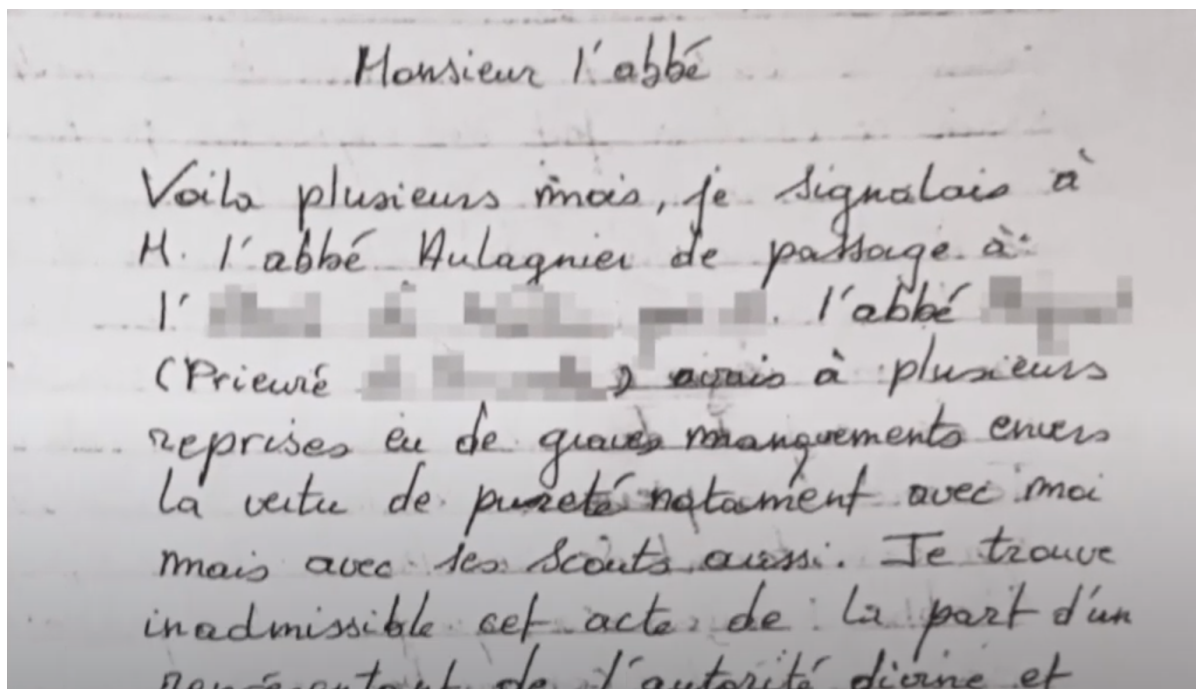 Monsieur l'abbé
Voila plusieurs mois, je signalais à
M. l'abbé Aulagnier de passage à
l' l'abbé
(Prieuré ) avais à plusieurs
reprises eu de graves manquements envers
la vertu de pureté notament avec moi
mais avec ses scouts aussi. Je trouve
inadmissible cet acte de la part d'un
représentant de l'autorité divine et